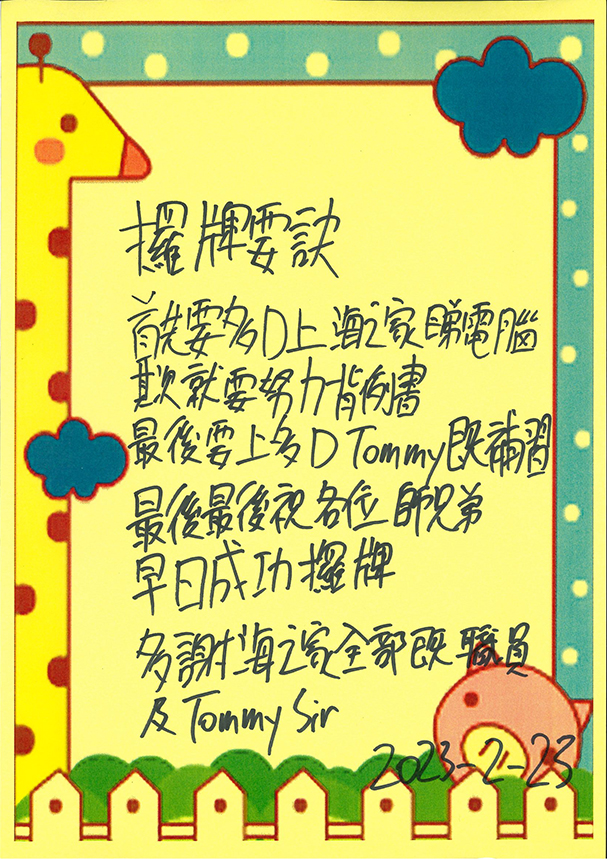 攞牌要訣
首先要多D上海之家睇電腦
其次就要努力背例書
最後要上多D Tommy既補習
最後最後祝各位師兄弟
早日成功攞牌
多謝海之家全部既職員
及Tommy Sir
2023-2-23